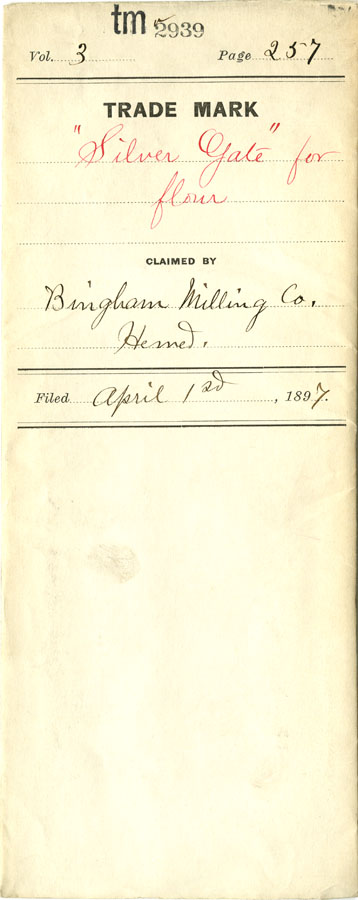 tm 2939
Vol. 3 Page 257
TRADE MARK
"Silver Gate" for
flour
CLAIMED BY
Bingham Milling Co.
Hemed.
Filed April 1sd, 1897.